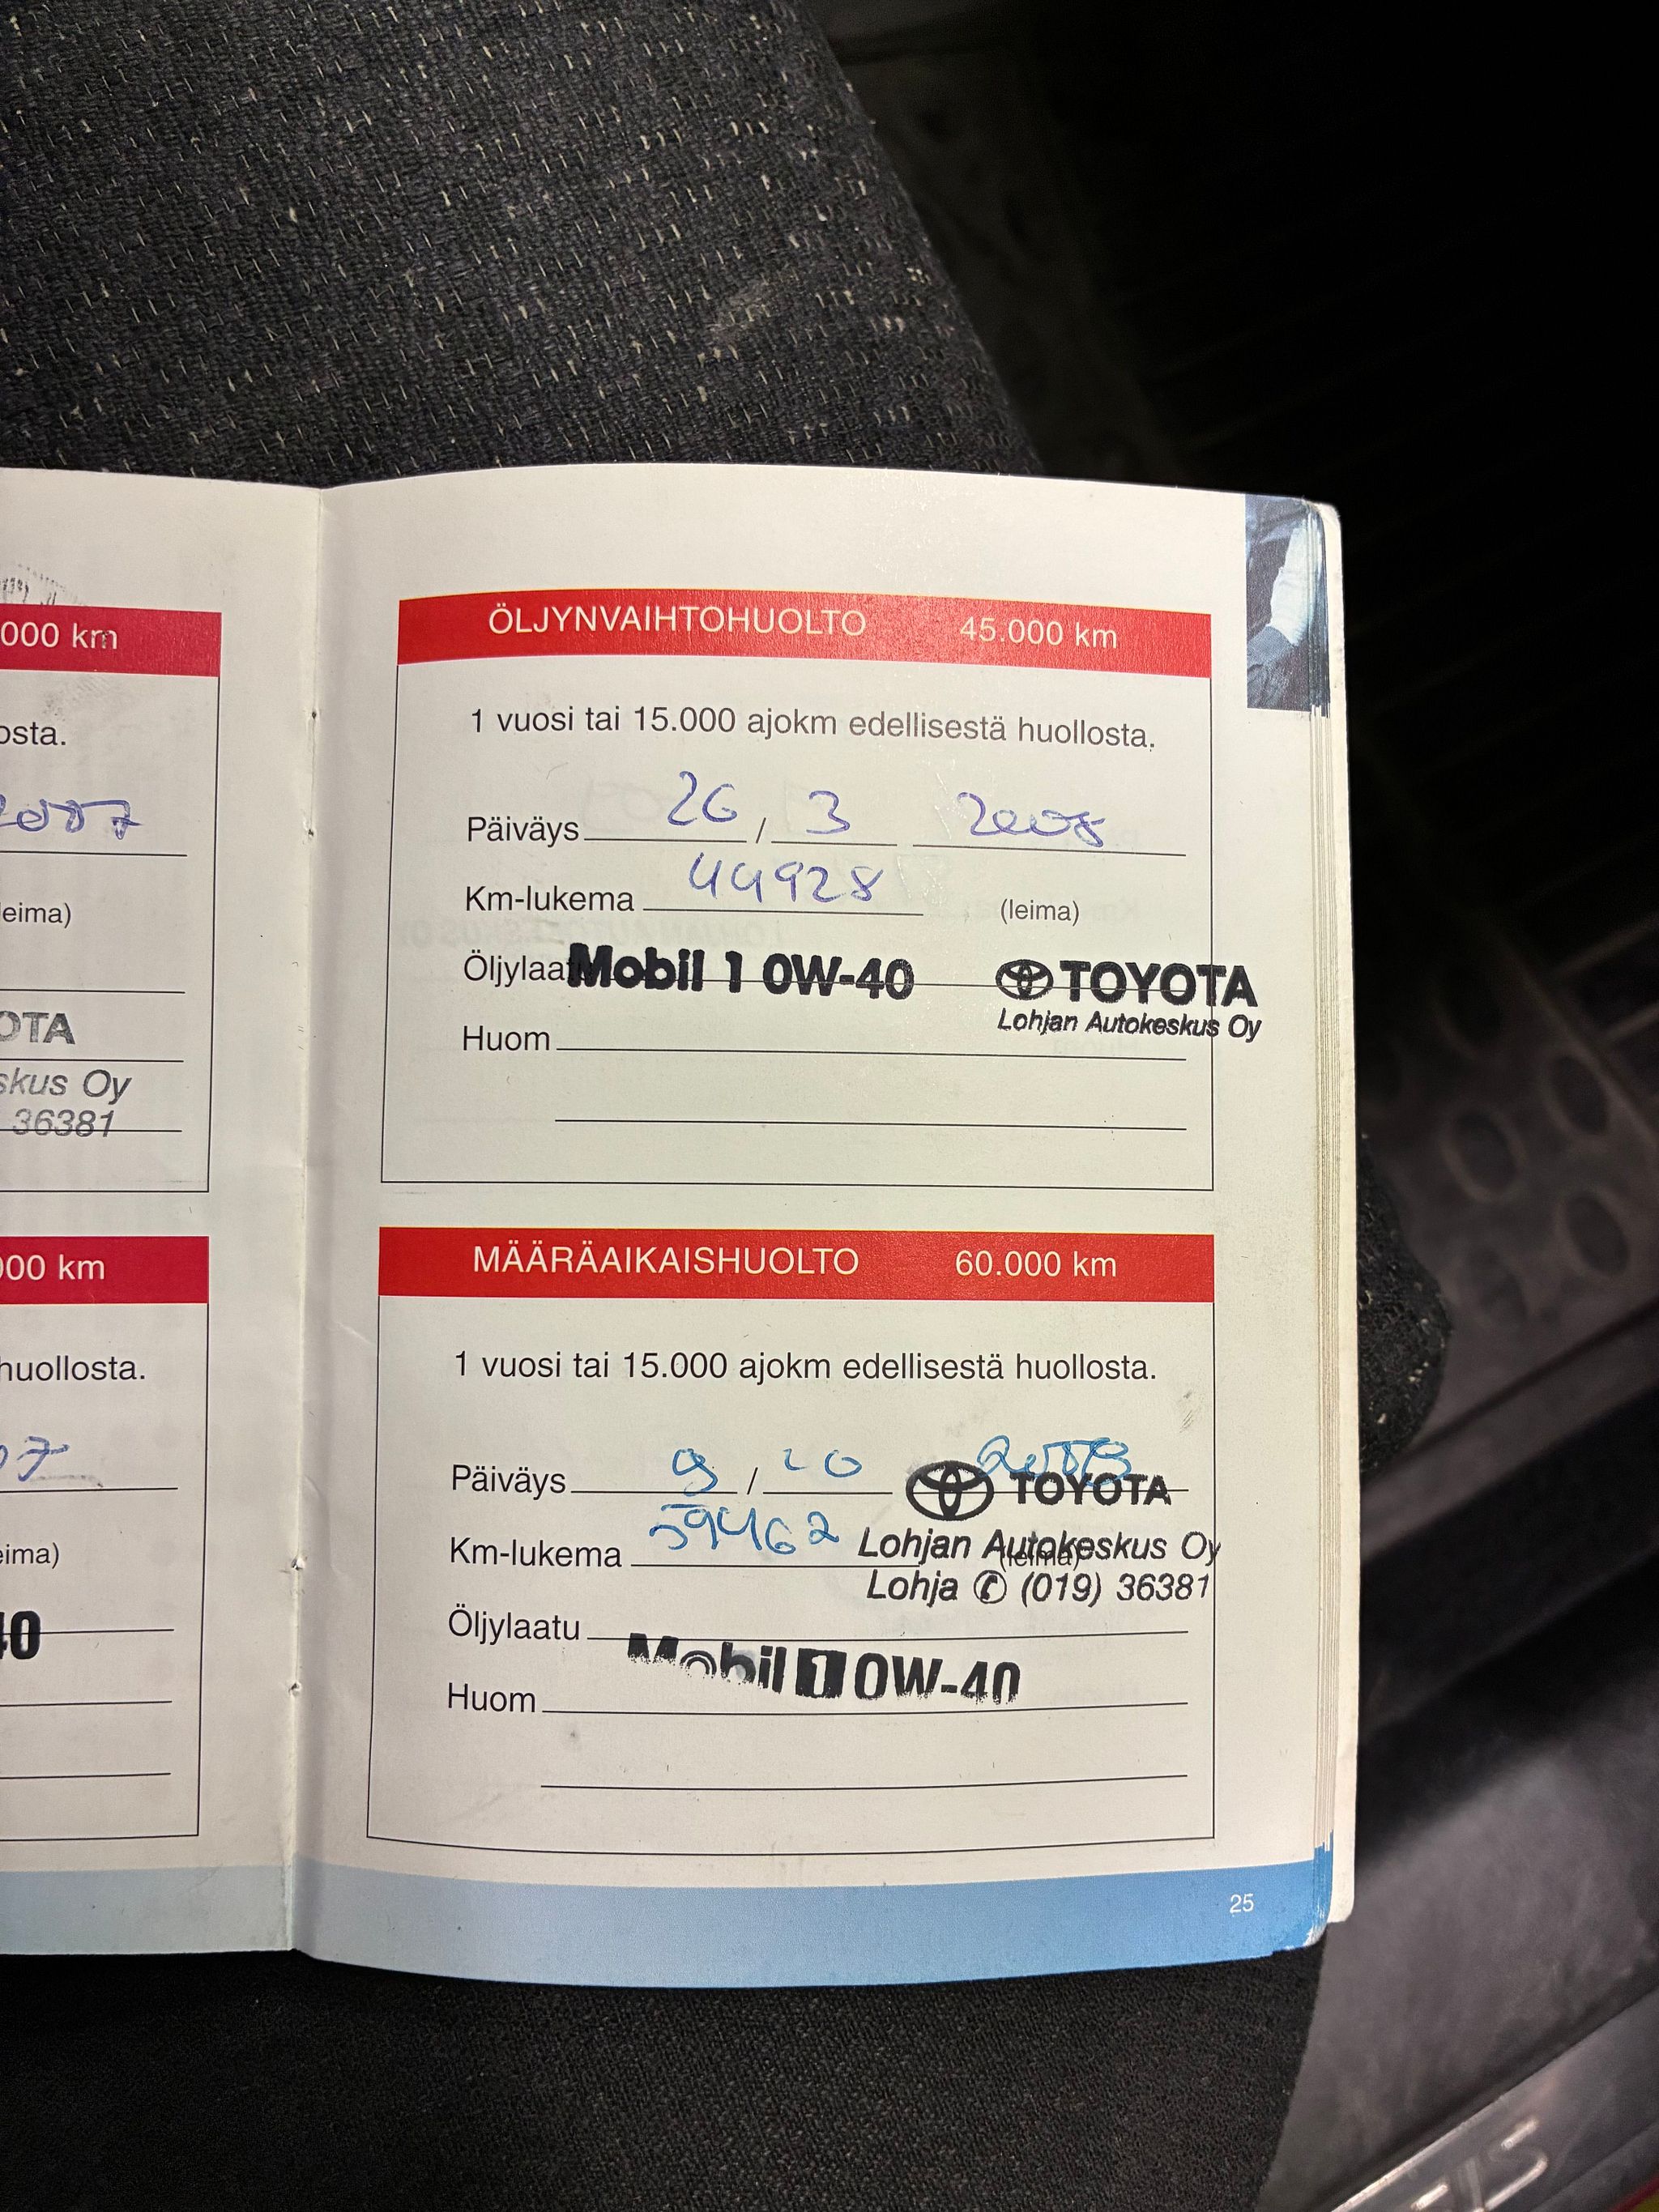 000 km
osta.
2007
leima)
OTA
skus Oy
36381
000 km
huollosta.
07
eima)
40
ÖLJYNVAIHTOHUOLTO 45.000 km
1 vuosi tai 15.000 ajokm edellisestä huollosta.
Päiväys 26 / 3 2008
Km-lukema 44928 (leima)
Öljylaat Mobil 1 0W-40 TOYOTA
Lohjan Autokeskus Oy
Huom
MÄÄRÄAIKAISHUOLTO 60.000 km
1 vuosi tai 15.000 ajokm edellisestä huollosta.
Päiväys 9 / 10 2008 TOYOTA
Km-lukema 59462 Lohjan Autokeskus Oy
(leima)
Lohja ✆ (019) 36381
Öljylaatu
Mobil 1 0W-40
Huom
25